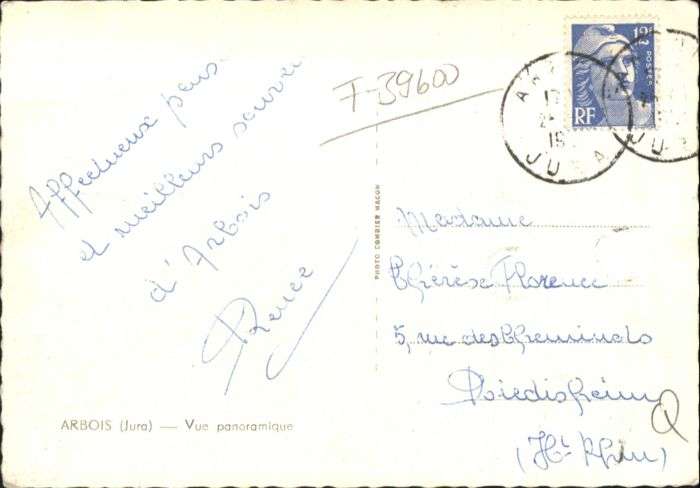 Affectueux pens
et meilleurs souve
d'Arbois
Renée
F-39600
12F
POSTES
RF
JURA
JURA
PHOTO COMBIER MACON
Madame
Thérèse Florence
5, rue des Cheminots
Riedisheim
(Ht Rhin)
Q
ARBOIS (Jura) — Vue panoramique